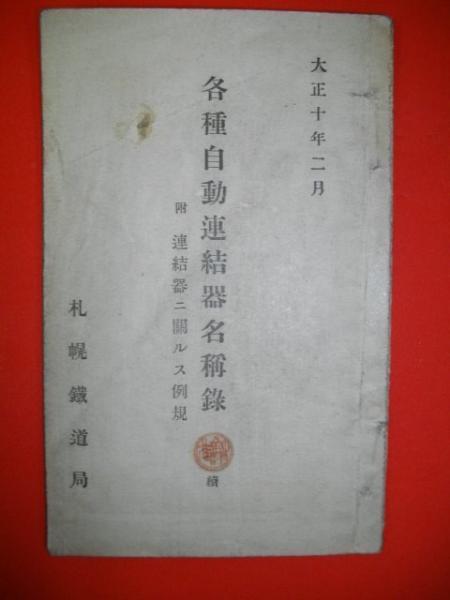 大正十年二月
各種自動連結器名稱錄
附 連結器ニ關ルス例規
續
札幌鐵道局